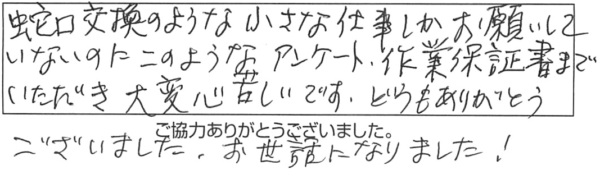 蛇口交換のような小さな仕事しかお願いして
いないのにこのようなアンケート、作業保証書まで
いただき大変心苦しいです、どうもありがとう
ご協力ありがとうございました。
ございました、お世話になりました!